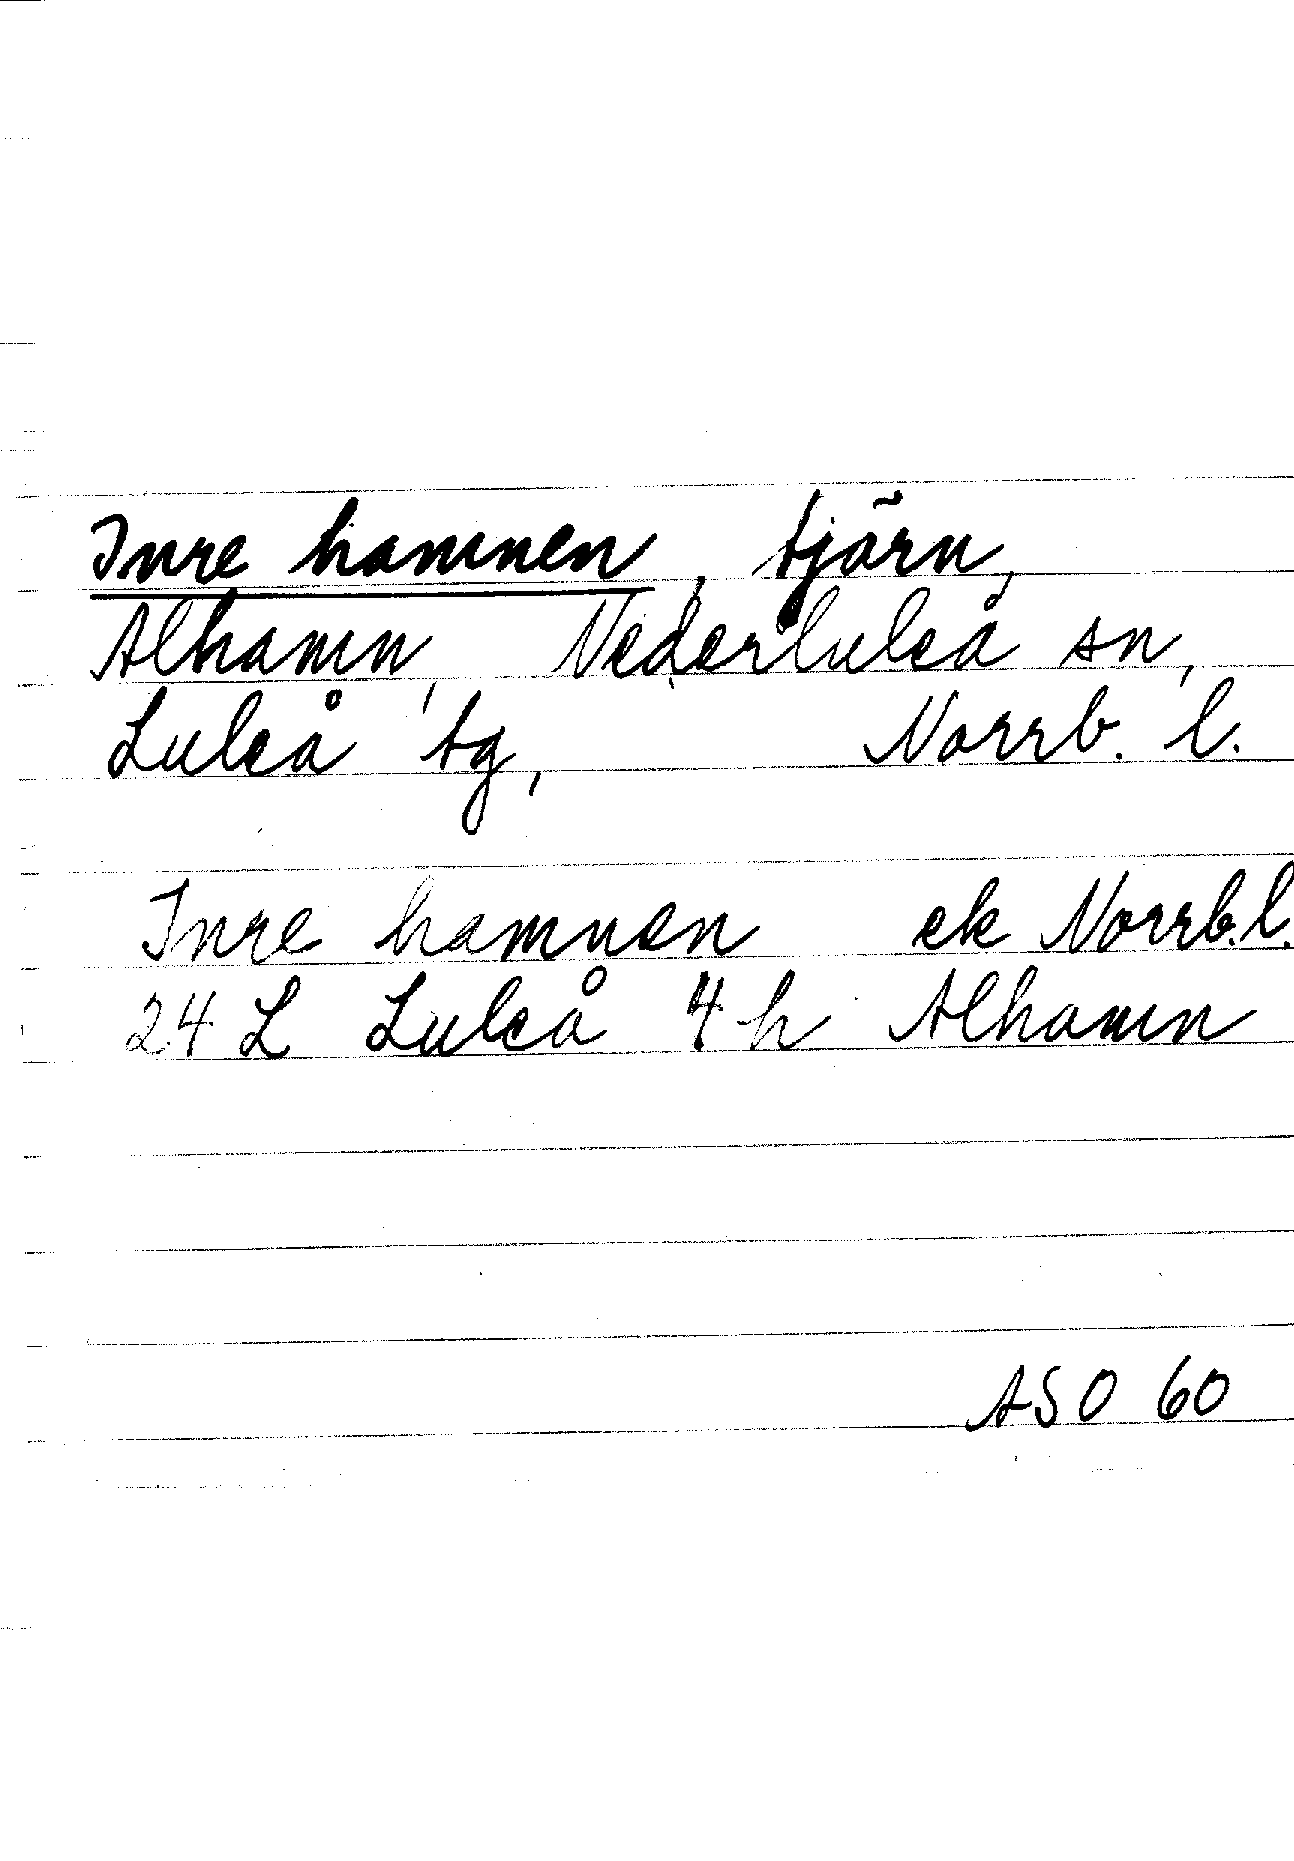 Inre hamnen, tjärn,
Alhamn, Nederluleå sn,
Luleå tg, Norrb. l.
Inre hamnen ek Norrb. l.
24 L Luleå 4 h Alhamn
ASO 60